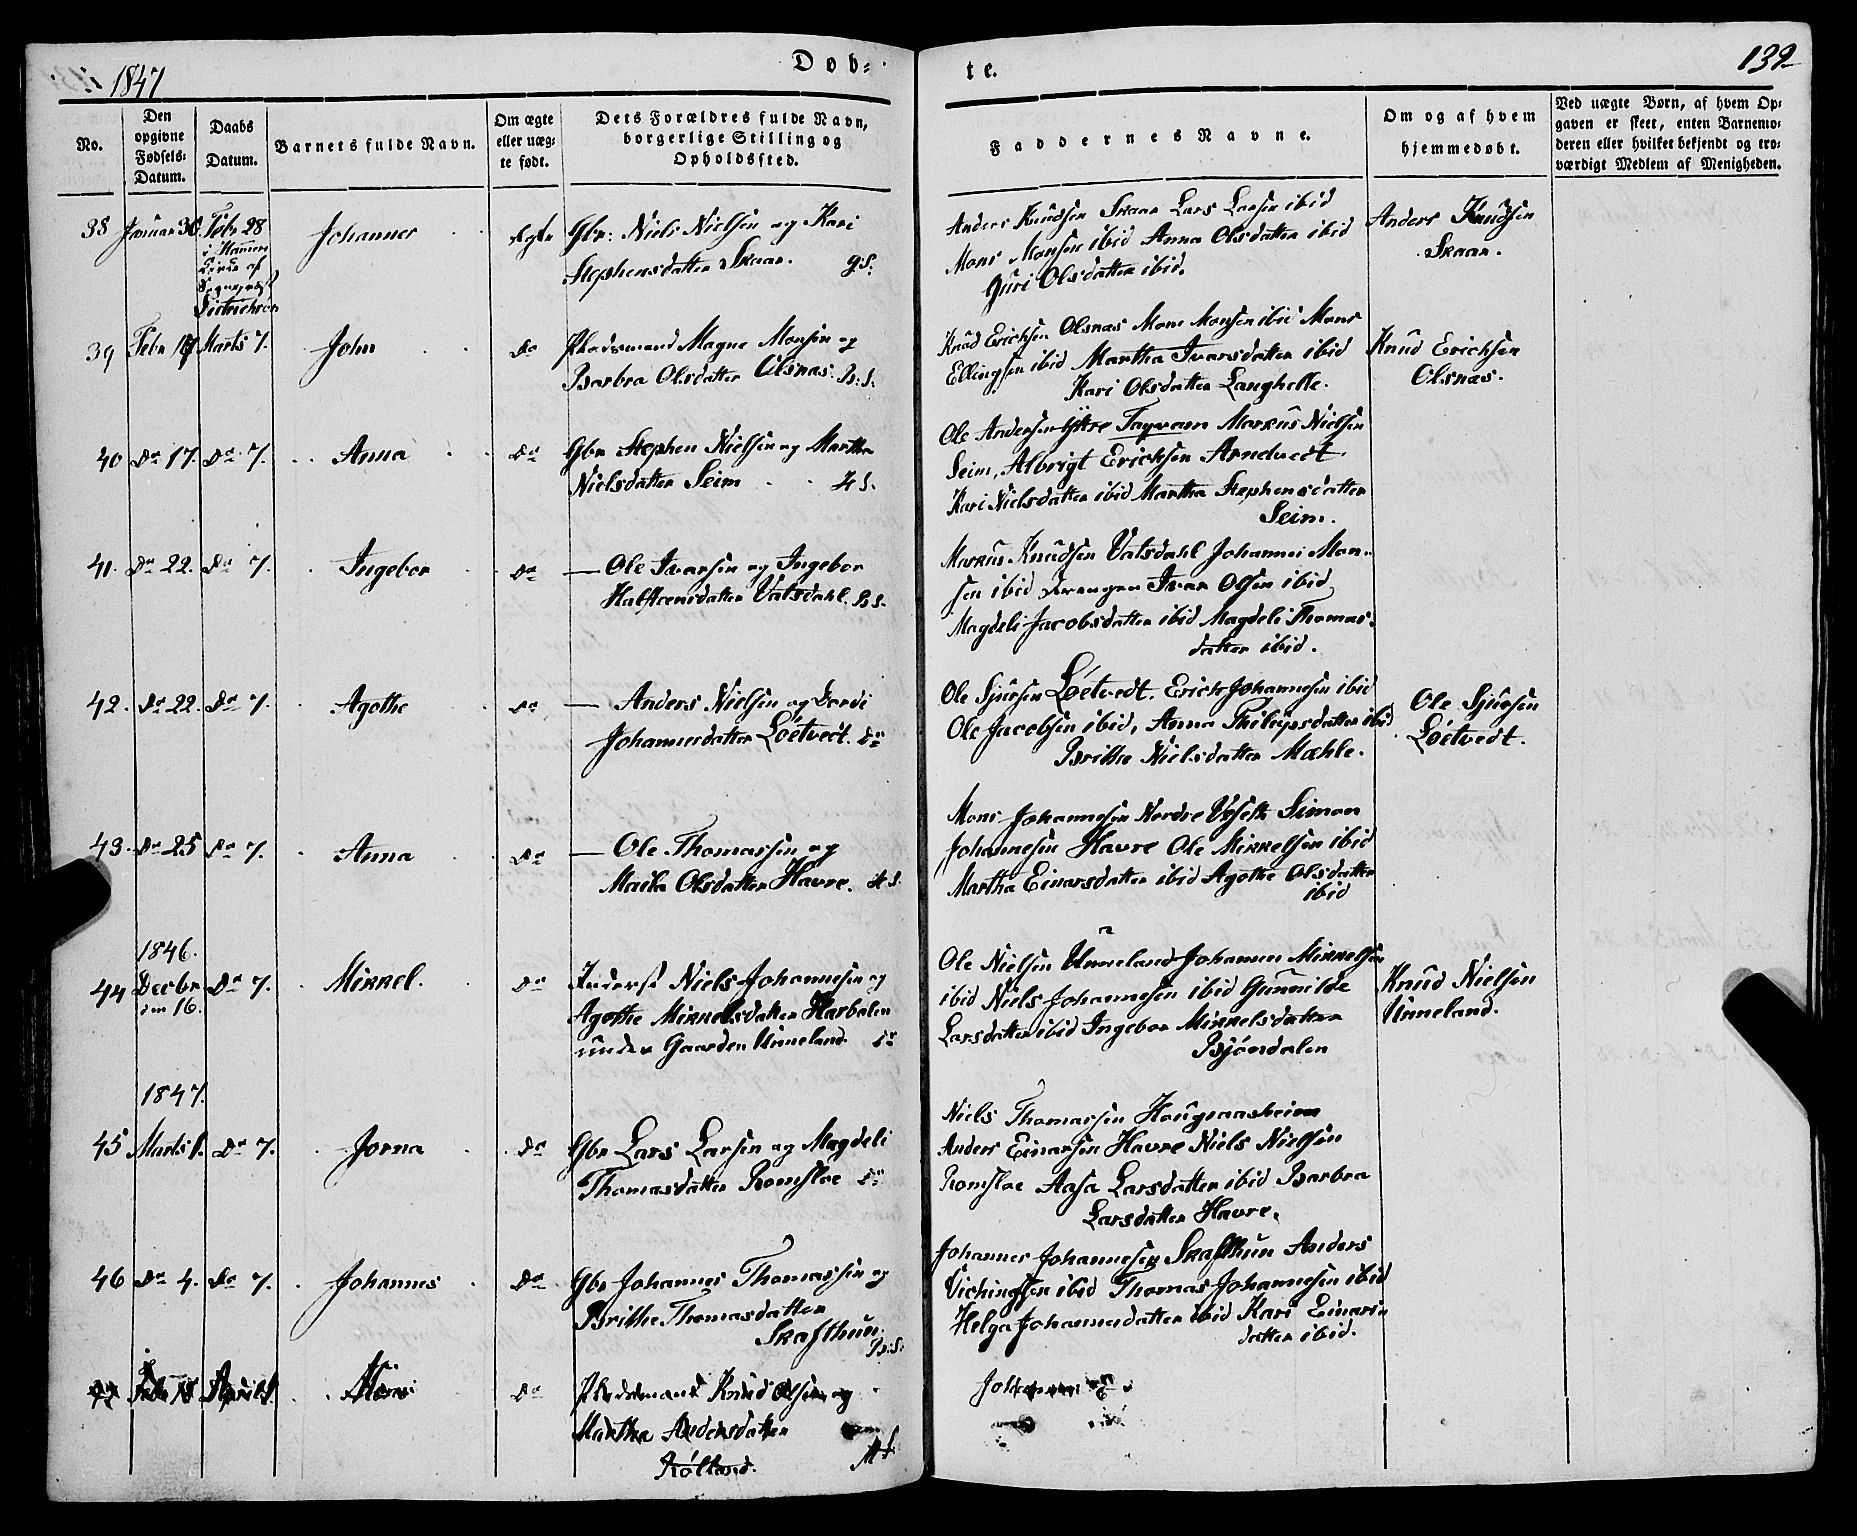 1847
Døb-
te.
139
No.
Den opgivne Fødsels-Datum.
Daabs Datum.
Barnets fulde Navn.
Om ægte eller uæg-te født.
Dets Forældres fulde Navn, borgerlige Stilling og Opholdssted.
Faddernes Navne.
Om og af hvem hjemmedøbt.
Ved uægte Børn, af hvem Op-
gaven er skeet, enten Barnemo-
deren eller hvilket bekjendt og tro-
værdigt Medlem af Menigheden.
38 Januar 30 Febr 28 Johannes Ægte Gbr: Niels Nielsen og Kari
Stephensdatter Skaar. g.S.
Anders Knudsen Skaar Lars Larsen ibid
Mons Monsen ibid Anna Olsdatter ibid
Guri Olsdatter ibid.
Anders Knudsen
Skaar.
39 Febr 17 Marts 7. John Do Pladsmand Magne Monsen og
Barbra Olsdatter Olsnæs. B:S.
Knud Erichsen Olsnæs Mons Monsen ibid Mons
Ellingsen ibid Martha Ivarsdatter ibid
Kari Olsdatter Langhelle.
Knud Erichsen
Olsnæs.
40 Do 17. Do 7. Anna Do Gbr Stephen Nielsen og Martha
Nielsdatter Seim H S.
Ole Andersen Ytre Tagvam Markus Nielsen
Seim, Albrigt Erichsen Arnetvedt
Kari Nielsdatter ibid Martha Stephensdatter
Seim.
41. Do 22. Do 7. Ingebor Do — Ole Ivarsen og Ingebor
Halsteensdatter Vatsdahl. B S.
Markus Knudsen Vatsdahl Johannes Mon-
sen ibid Ivar Olsen ibid
Magdeli Jacobsdatter ibid Magdeli Thomas-
datter ibid.
42. Do 22. Do 7. Agothe Do — Anders Nielsen og Dordi
Johannesdatter Löetvedt. Do
Ole Sjursen Löetvedt. Erich Johannesen ibid
Ole Jacobsen ibid, Anna Philipsdatter ibid
Brithe Nielsdatter Mæhle.
Ole Sjursen
Löetvedt.
43. Do 25 Do 7. Anna Do — Ole Thomassen og
Marta Olsdatter Havre. H S.
Mons Johannesen Nordre Simon
Johannesen Havre Ole Mikkelsen ibid
Martha Einarsdatter ibid Agothe Olsdatter
ibid
1846.
44 Decbr den 16. Do 7. Mikkel. Do Inderst Niels Johannesen og
Agothe Mikkelsdatter Harbalen
under Gaarden Unneland Do
Ole Nielsen Unneland Johannes Mikkelsen
ibid Niels Johannesen ibid Gunnilde
Larsdatter ibid Ingebor Mikkelsdatter
Bjørndalen
Knud Nielsen
Unneland.
1847.
45 Marts 1. Do 7. Jorna Do Gbr Lars Larsen og Magdeli
Thomasdatter Romsloe Do
Niels Thomassen Hougmasheim
Anders Einarsen Havre Niels Nielsen
Romsloe Aasa Larsdatter ibid Barbra
Larsdatter Havre.
46 Do 4. Do 7. Johannes Do Gbr Johannes Thomassen og
Brithe Thomasdatter
Skafthun. B:S.
Johannes Johannesen Skafthun Anders
Vichingsen ibid Thomas Johannesen ibid
Helga Johannesdatter ibid Kari Einars-
datter ibid.
April Do Pladsmand Knud Olsen og
Martha Andersdatter